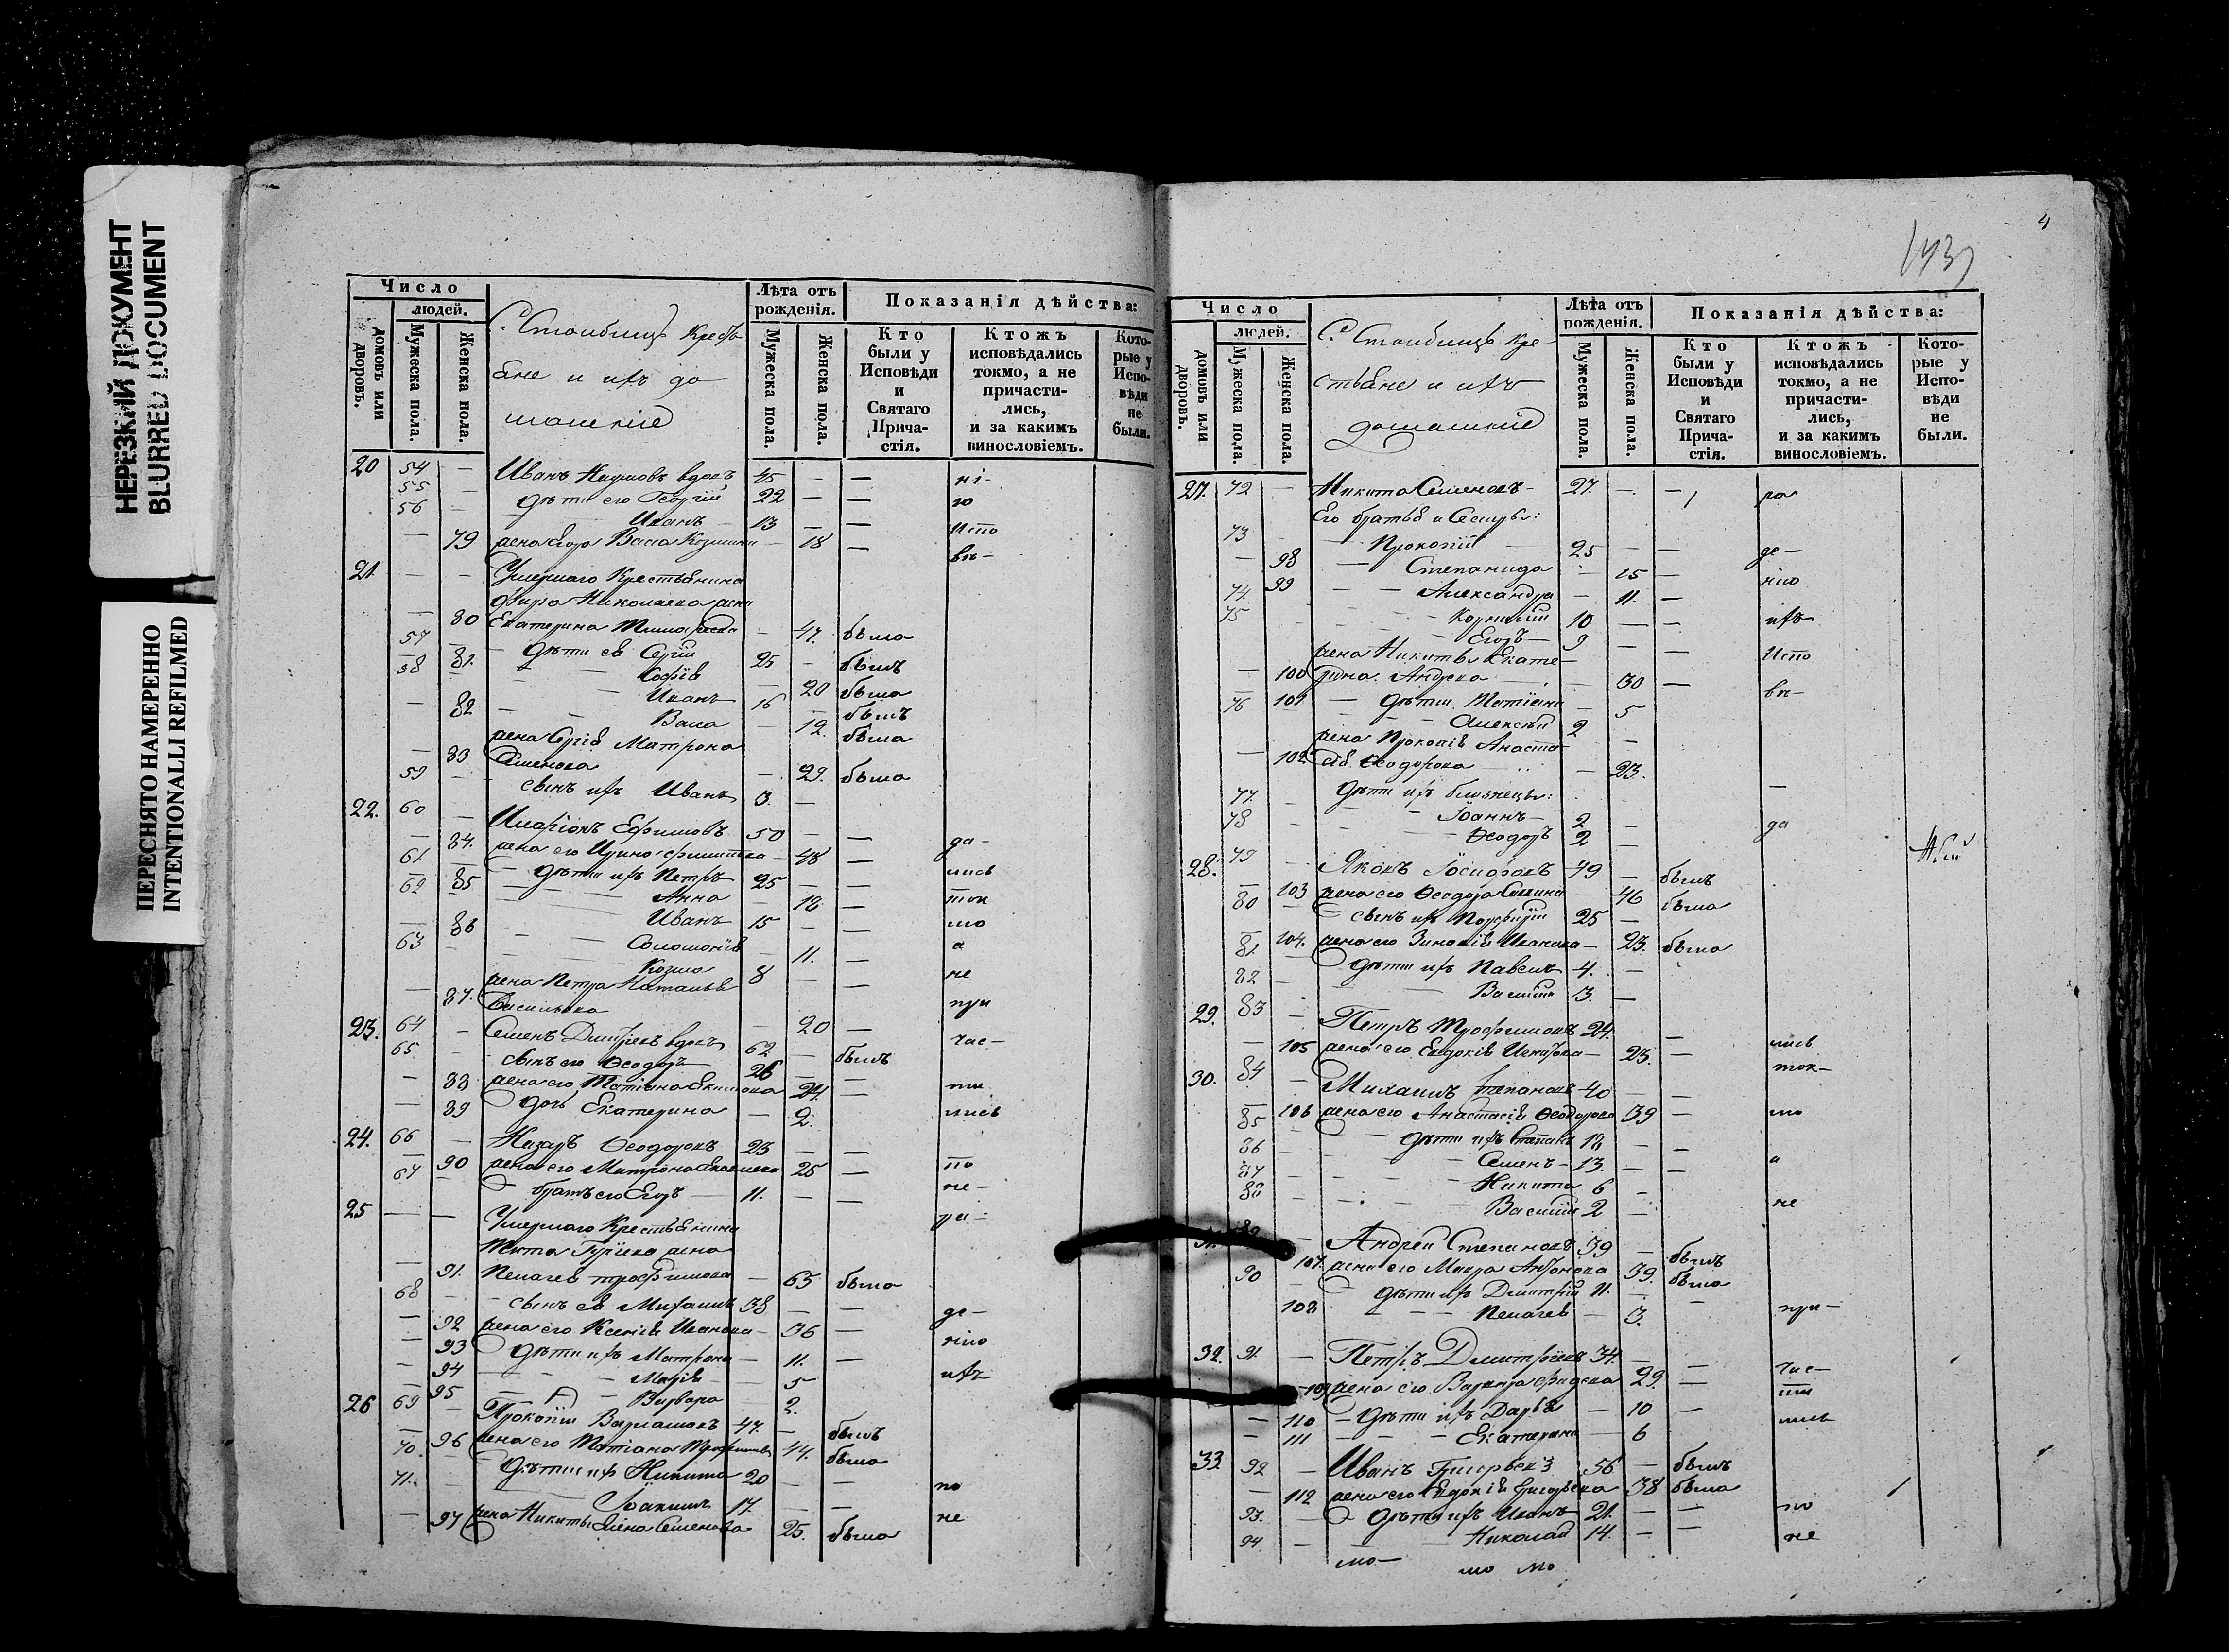 НЕРЕЗКИЙ ДОКУМЕНТ
BLURRED DOCUMENT
ПЕРЕСНЯТО НАМЕРЕННО
INTENTIONALLI REFILMED
Число
людей.
домовъ или дворовъ.
Мужеска пола.
Женска пола.
С. Столбищъ Кресть
яне и ихъ до
машніе
Лѣта отъ рожденія.
Мужеска пола.
Женска пола.
Показанія дѣйства:
Кто были у Исповѣди и Святаго Прича- стія.
Ктожъ исповѣдались токмо, а не причасти- лись, и за какимъ винословіемъ.
Кото- рые у Испо- вѣди не были.
20 54 — Иванъ Наумовъ вдовъ 45 — — ні-
55 — дѣти его Георгій 22 — — ю
56 — Иванъ — 13 — — Испо
— 79 жена Васса Козмина — 18 — вѣ-
21 — — Умершаго Крестьянина
Николаева жена
— 80 Екатерина — 47. была
57 — дѣти ея Сергій 25 — былъ
— 81. Софія — 20 была
58 — Иванъ 16 — былъ
— 82 Васса — 12. была
жена Сергія Матрона
— 83 Семенова — 22. была
59 — сынъ ихъ Иванъ 3. —
22. 60 — Иларіонъ Ефимовъ 50 — — да-
— 84. жена его Ирина — 48 — лись
61. — дѣти ихъ Петръ 25 — — ток
— 85 Анна — 18 — мо
62 — Иванъ 15 — — а
— 86 Соломонія — 11. — не
63 — Козма 8 — —
жена Петра Наталья
— 87. Васильева — 20 — при
23. 64 — Семенъ вдовъ 62 — былъ час-
65 — сынъ его Ѳеодоръ 26 — —
— 88 жена его Татіана Якимова 24. — ти
— 89 дочь Екатерина — 2. лись
24. 66 — Назаръ Ѳеодоровъ 23 — —
— 90 жена его Матрона 25 — по
67 — братъ его Егоръ — 11. — — не-
25 — — Умершаго Крестьянина
Гуріева жена
— 91. Пелагея Трофимова — 65 была
68 — сынъ ея Михаилъ 38 — —
— 92 жена его Ксенія Иванова — 36 — де-
— 93 дѣти ихъ Матрона — 11. — нію
— 94 Марія — 5 ихъ
— 95 Варвара — 2.
26 69 — Прокопій Варламовъ 47. — былъ
— 96 жена его Татіана 44. была
70. — дѣти ихъ Никита 20 — — по
71. — Іоакимъ 17. — —
— 97 жена Никиты Елена Семенова 25. была не
4
Число
людей.
домовъ или дворовъ.
Мужеска пола.
Женска пола.
С. Столбищъ Кре-
стьяне и ихъ
домашніе
Лѣта отъ рожденія.
Мужеска пола.
Женска пола.
Показанія дѣйства:
Кто были у Исповѣди и Святаго Прича- стія.
Ктожъ исповѣдались токмо, а не причасти- лись, и за какимъ винословіемъ.
Кото- рые у Испо- вѣди не были.
27. 72 — Никита Семеновъ — 27. — — ра
Его братья и Сестры:
73 — Прокопій 25 — — де—
— 98 — Степанида — 15 — нію
— 99 — Александра — 11. —
74. — Корнилій 10 — — ихъ
75 — Егоръ — 9 — — Испо
жена Никиты Екате-
— 100 рина — 30 — вѣ-
— 101 — дѣти Татіана — 5
76 — Алексѣй 2 —
жена Прокопія Анаста-
— 102 сія Ѳеодорова — 23.
дѣти ихъ близнецы: —
77. — Іоаннъ — 2 —
78 — Ѳеодоръ 2 — да
28. 79 — Яковъ Іосифовъ 49 — былъ
— 103 жена его Ѳеодора — 46 была
80 — сынъ ихъ Порфирій 25 —
— 104. жена его Зиновія Иванова — 23. была
81 — дѣти ихъ Павелъ 4. —
82 — Василій 3. —
29. 83 — Петръ Трофимовъ 24. — — лись
— 105 жена его Евдокія — 23. —
30. 84 — Михаилъ Степановъ 40 — — ток—
— 106 жена его Анастасія Ѳеодорова 39 — мо
85 — дѣти ихъ Степанъ 18 — —
86 — Семенъ — 13. — — а
87 — Никита 6 —
88 — Василій 2 — не
31. 89 — Андрей Степановъ 39 — былъ
— 107. жена его Мавра 39. была
90 — дѣти ихъ Дмитрій 11. — —
108 Пелагея — 3. при—
32. 91. — Петръ Дмитріевъ 34. — —
— 109 жена его Варвара 29. — час—
— 110 — дѣти ихъ Дарья — 10 — ти
— 111 — Екатерина — 6 лись
33. 92 — Иванъ Григорьевъ 56 — былъ
— 112 жена его Евдокія Григорьева 38 была
93. — дѣти ихъ Иванъ 21. — — по
94. — Николай 14. — — не